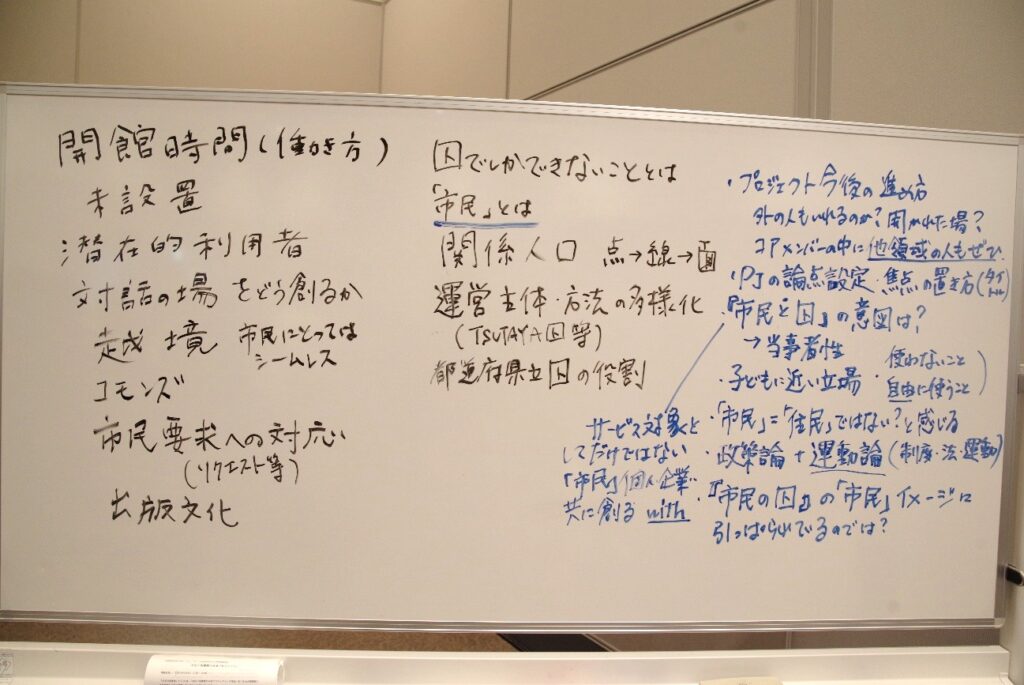 開館時間(働き方)
未設置
潜在的利用者
対話の場をどう創るか
越境 市民にとっては
シームレス
コモンズ
市民要求への対応
(リクエスト等)
出版文化
囗でしかできないこととは
「市民」とは
関係人口 点→線→面
運営主体・方法の多様化
(TSUTAYA囗等)
都道府県立囗の役割
・プロジェクト今後の進め方
外の人もいれるのか?開かれた場?
コアメンバーの中に他領域の人もぜひ
・PJの論点設定・焦点の置き方(タイトル)
・『市民と囗』の意図は?
→当事者性
・子どもに近い立場
・使わないこと
自由に使うこと
・「市民」=「住民」ではない?と感じる
・政策論+運動論(制度・法・運動)
・『市民の囗』の「市民」イメージに
引っぱられてるのでは?
サービス対象と
してだけではない
「市民」個人・企業
共に創る with